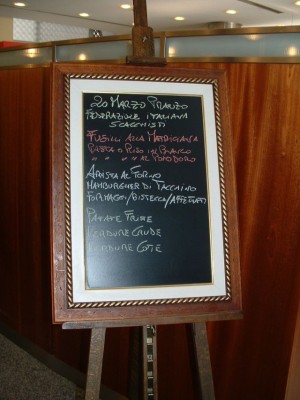 20 MARZO PRANZO
FEDERAZIONE ITALIANA
SCACCHISTI
FUSILLI ALLA MARCHIGIANA
PASTA O RISO IN BIANCO
" " " AL POMODORO
ARISTA AL FORNO
HAMBURGHER DI TACCHINO
FORMAGGI/BISTECCA/AFFETTATI
PATATE FRITTE
VERDURE CRUDE
VERDURE COTTE